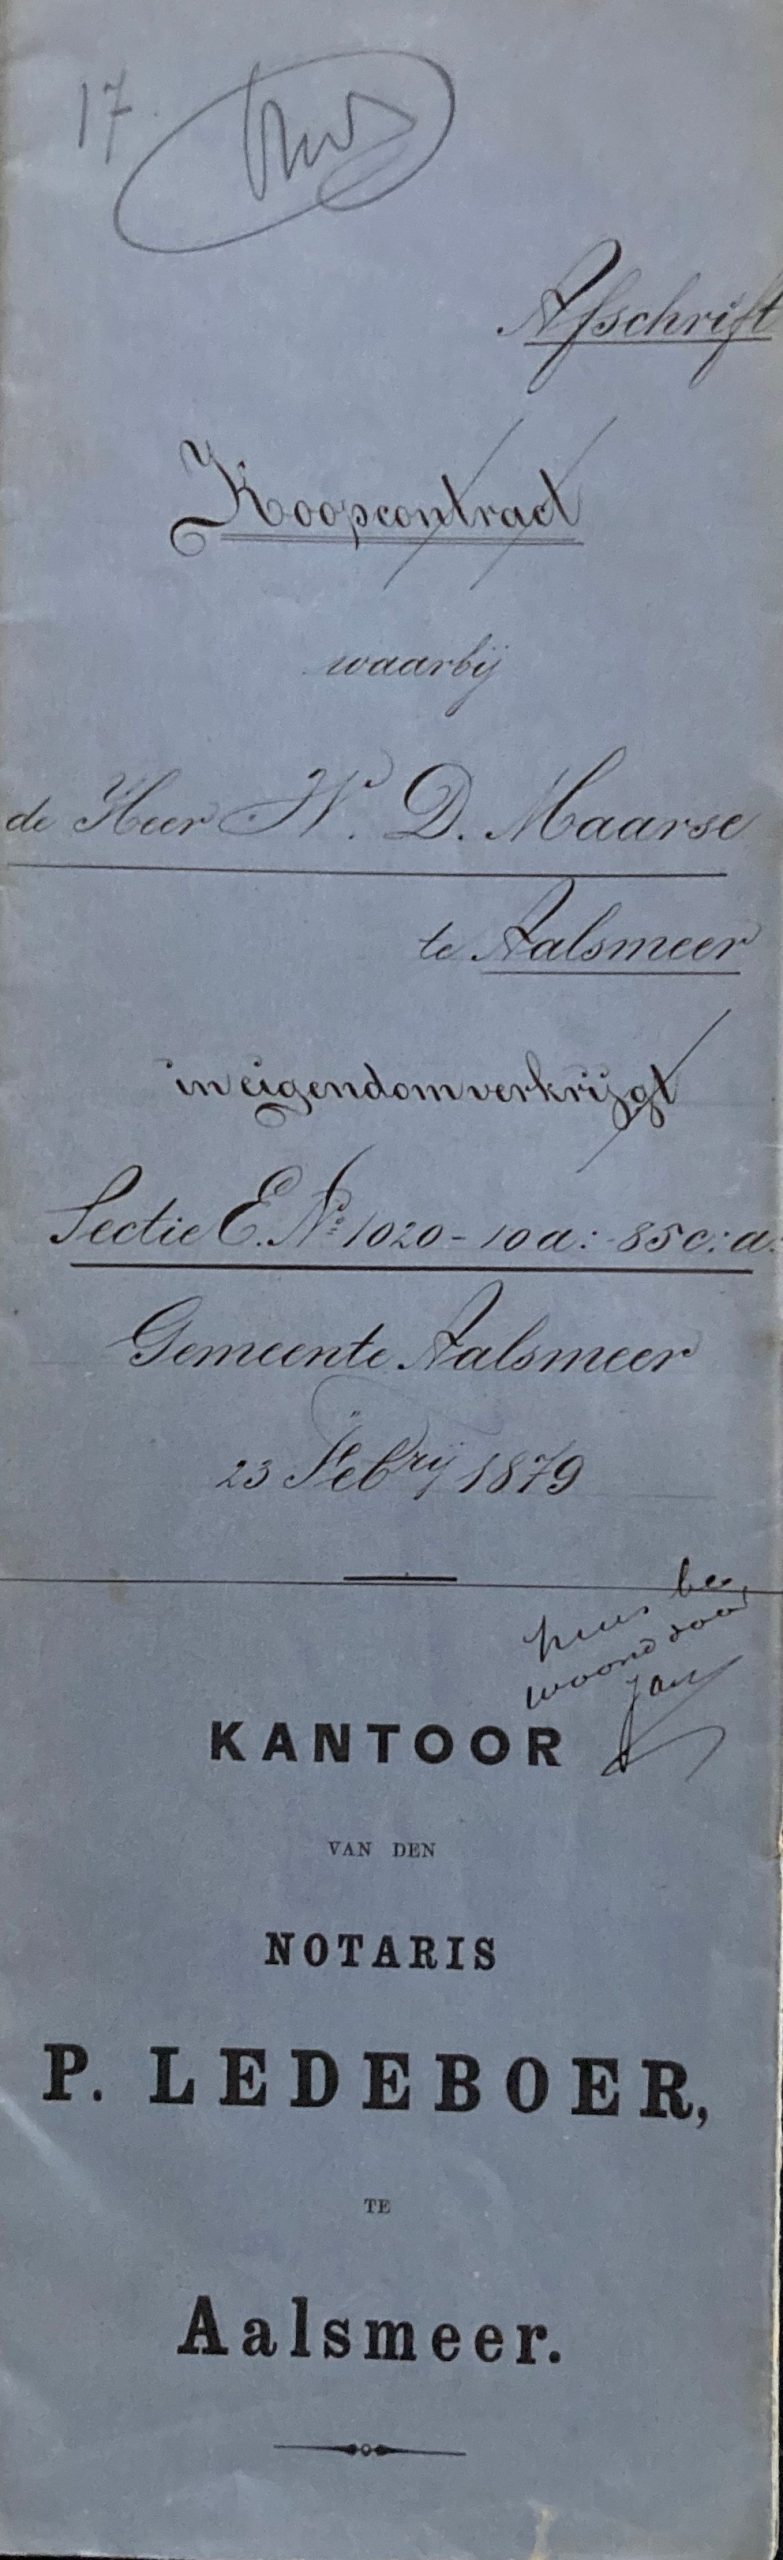 17.
huis
Afschrift
Koopcontract
waarbij
de Heer W. D. Maarse
te Aalsmeer
in eigendom verkrijgt
Sectie E. No 1020 - 10 a: - 85 c: a:
Gemeente Aalsmeer
23 Febrij 1879
huis be
woond door
Jan
KANTOOR
VAN DEN
NOTARIS
P. LEDEBOER,
TE
Aalsmeer.